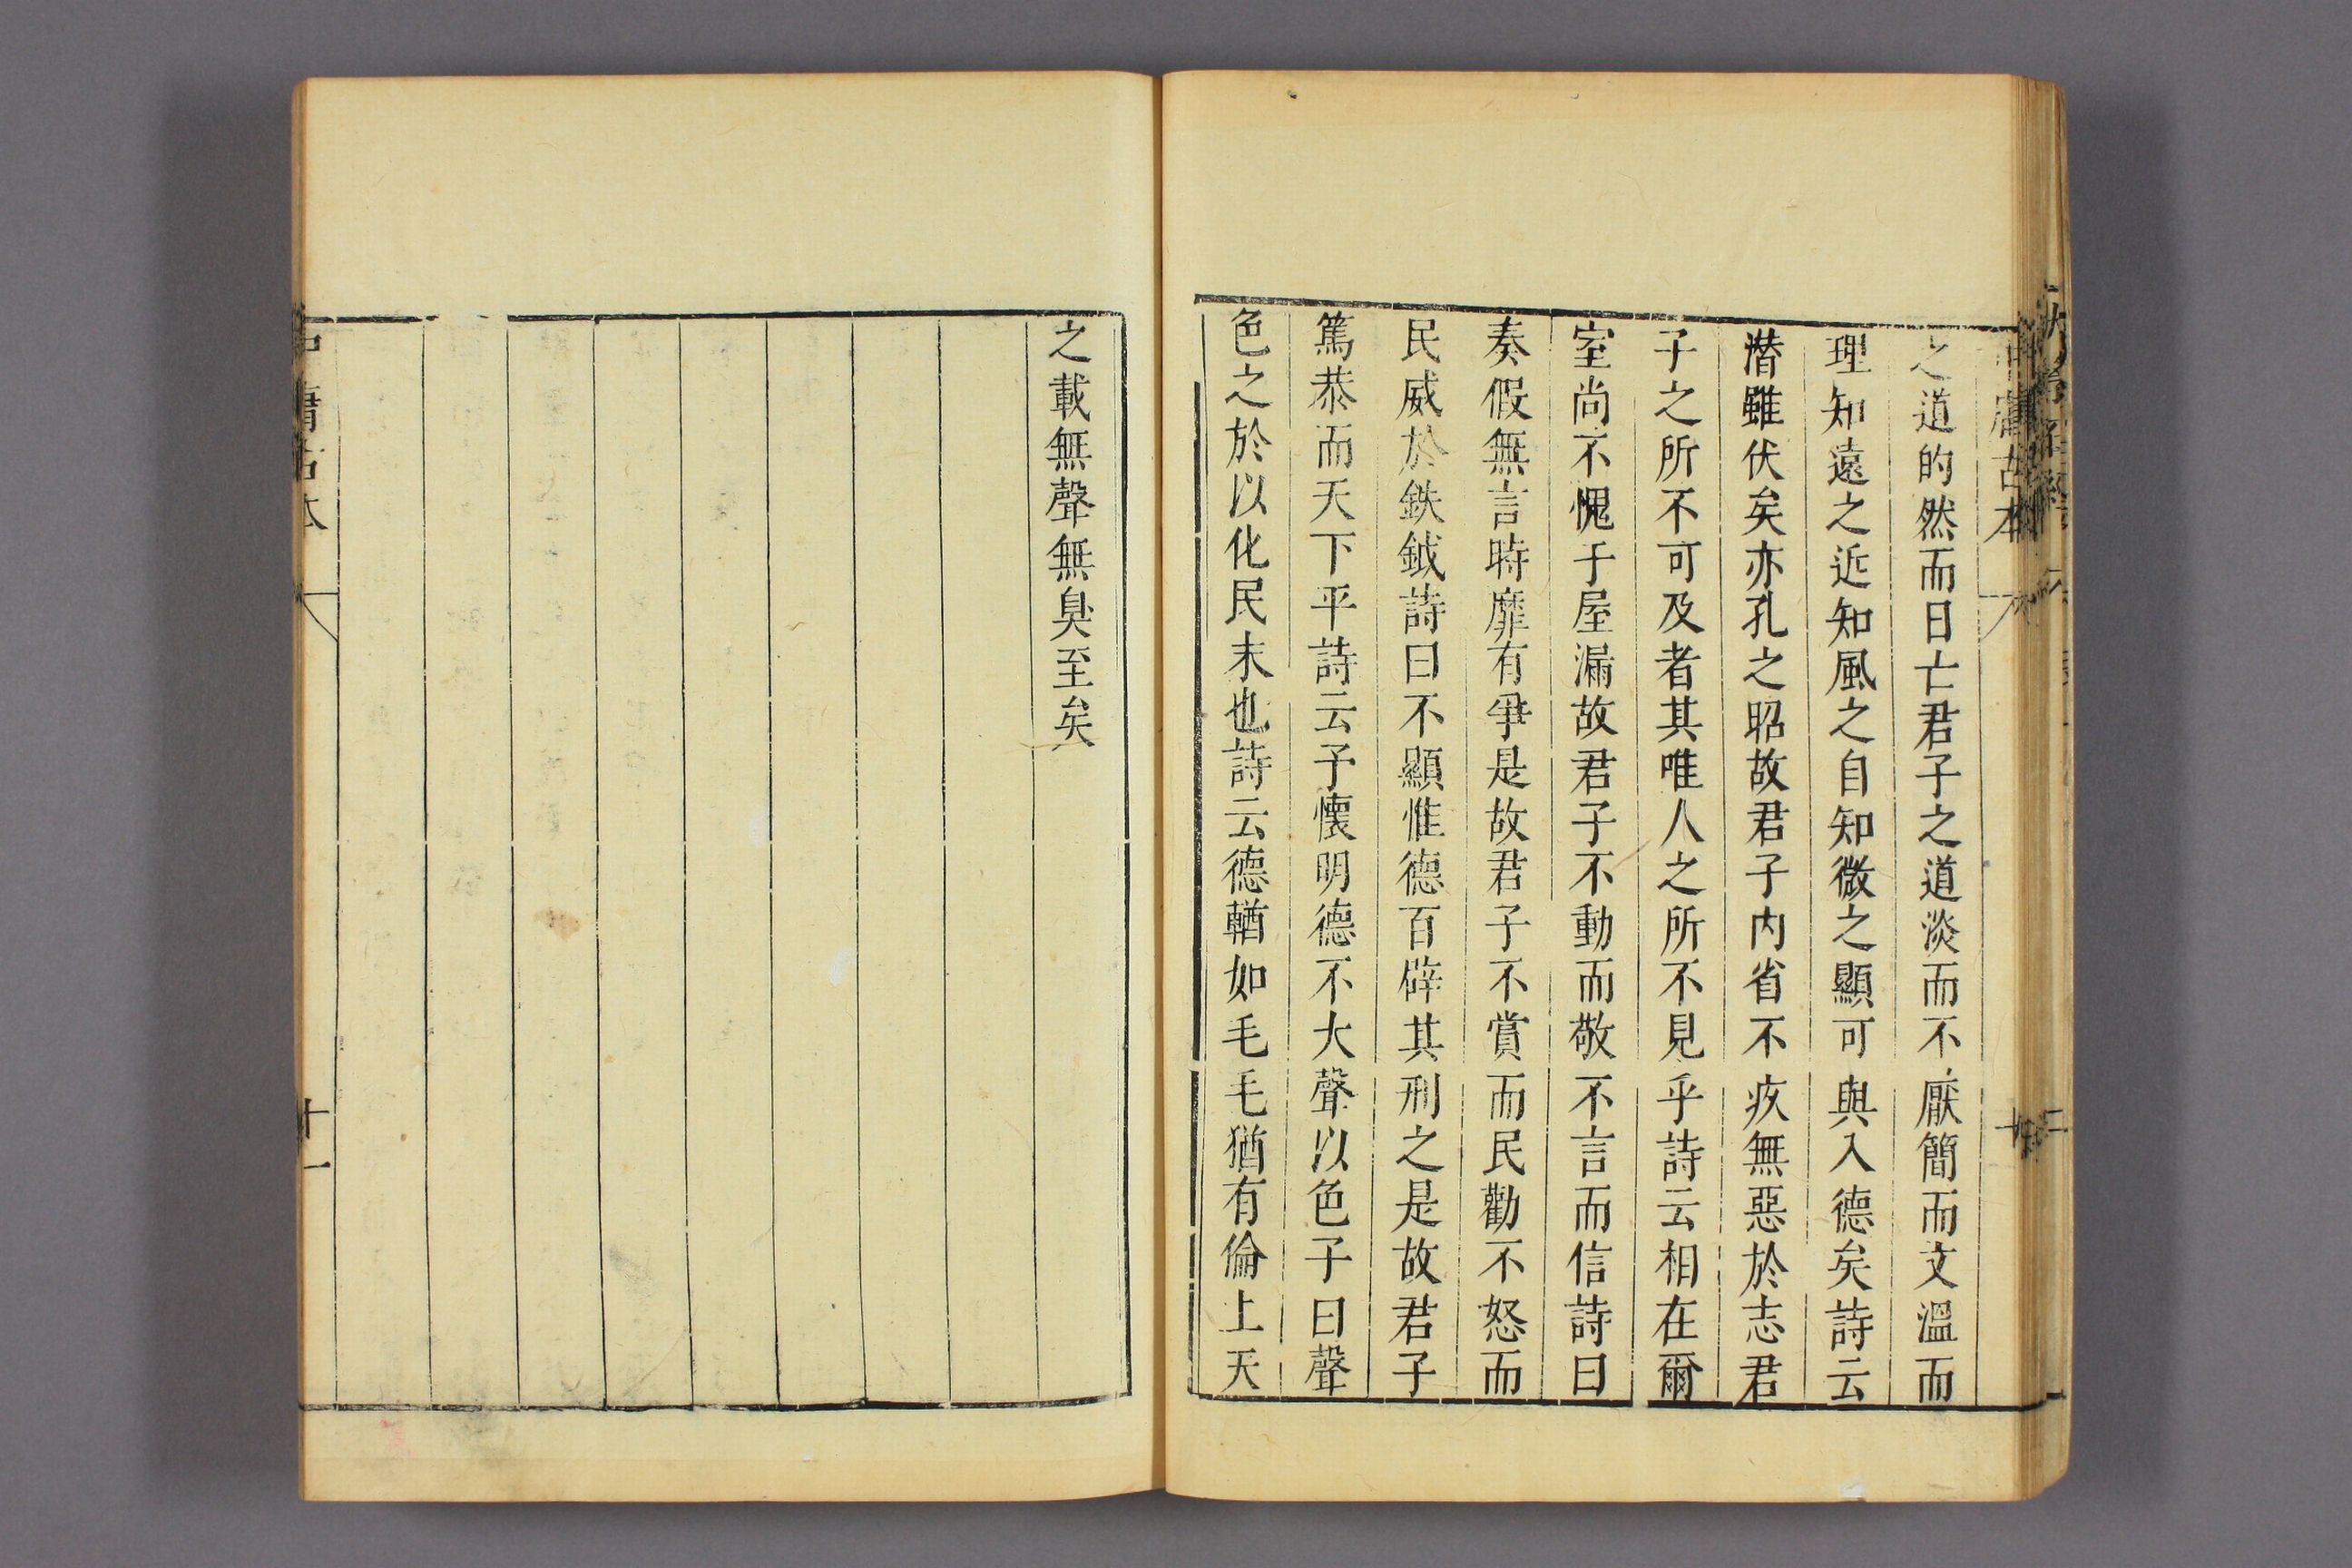 中庸古本
之道的然而日亡君子之道淡而不厭簡而文溫而
理知遠之近知風之自知微之顯可與入德矣詩云
潛雖伏矣亦孔之昭故君子内省不疚無惡於志君
子之所不可及者其唯人之所不見乎詩云相在爾
室尚不愧于屋漏故君子不動而敬不言而信詩曰
奏假無言時靡有爭是故君子不賞而民勸不怒而
民威於鈇鉞詩曰不顯惟德百辟其刑之是故君子
篤恭而天下平詩云予懷明德不大聲以色子曰聲
色之於以化民末也詩云德輶如毛毛猶有倫上天
之載無聲無臭至矣
中庸古本
十一